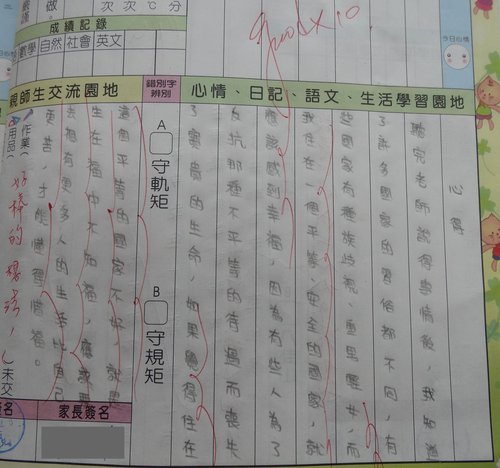 做。
次
次
℃
分
成績記錄
數學 自然 社會 英文
Good x10
今日心情
親師生交流園地
錯別字辨別
心情、日記、語文、生活學習園地
心得
聽完老師說得事情後，我知道
了許多國家的習俗都不同，有
些國家有種族歧視、重男輕女，而
我住在一個平等、安全的國家，就
應該感到幸福，因為有些人為了
反抗那種不平等的待遇而喪失
了寶貴的生命，如果覺得住在
A 守軌矩
B 守規矩
這個平等的國家不好，就是
生在福中不知福，應該
去想有更多人的生活比自己
更苦，才能懂得惜福。
作業
用品
好棒的想法，
未交
簽名
家長簽名